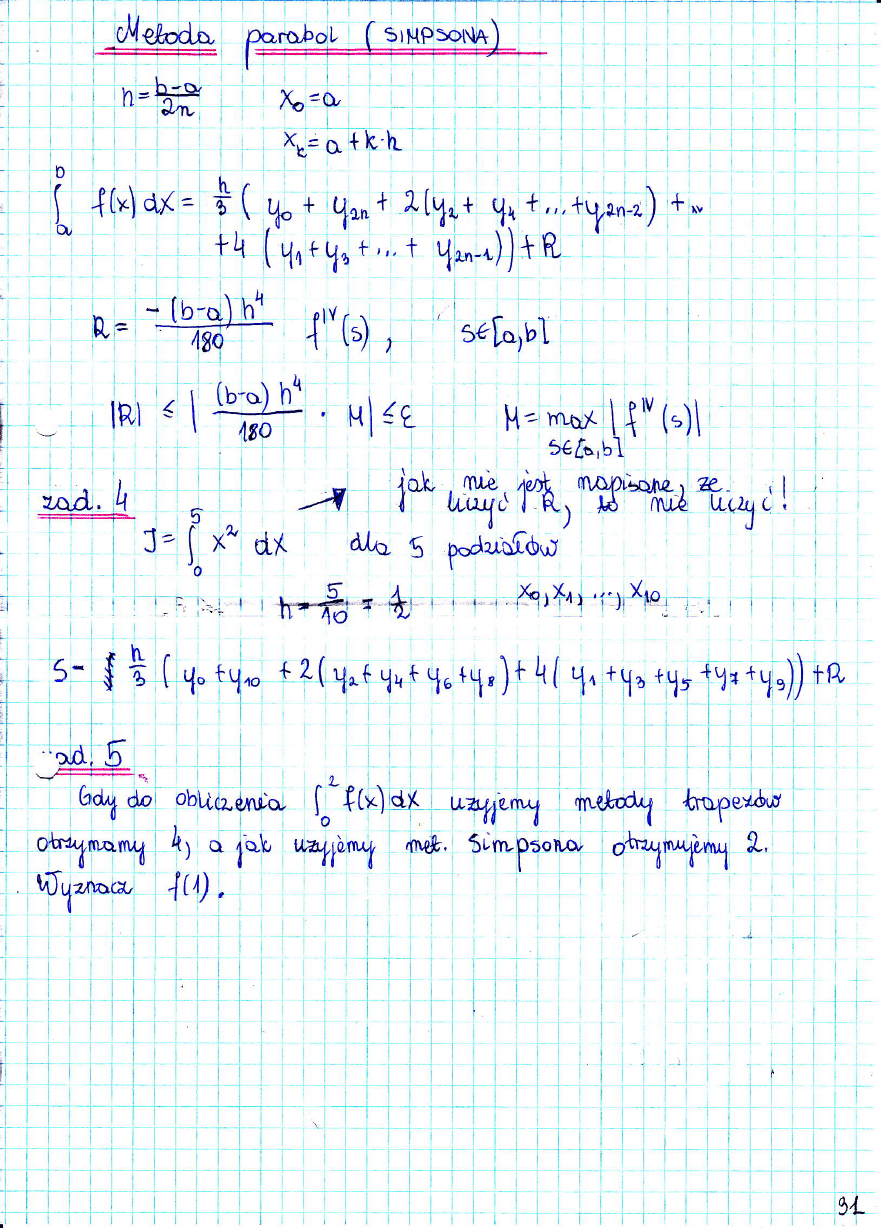 Metoda parabol (SIMPSONA)
h = \frac{b-a}{2n}   x_0 = a
x_k = a + k·h
\int_a^b f(x) dx = \frac{h}{3} ( y_0 + y_{2n} + 2(y_2 + y_4 + ... + y_{2n-2}) +
+4 (y_1 + y_3 + ... + y_{2n-1})) + R
R = \frac{-(b-a) h^4}{180} f^{IV}(s) ,   s∈[a,b]
|R| ≤ | \frac{(b-a) h^4}{180} · M| ≤ ε   M = max_{s∈[a,b]} |f^{IV}(s)|
jak nie jest napisane, ze
zad. 4   liczyć R, to nie liczyć!
J = \int_0^5 x^2 dx   dla 5 podziałów
h = \frac{5}{10} = \frac{1}{2}   x_0, x_1, ..., x_{10}
S - \frac{h}{3} ( y_0 + y_{10} + 2(y_2 + y_4 + y_6 + y_8) + 4( y_1 + y_3 + y_5 + y_7 + y_9)) + R
ad. 5
Gdy do obliczenia \int_0^2 f(x) dx użyjemy metody trapezów
otrzymamy 4, a jak użyjemy met. Simpsona otrzymujemy 2.
Wyznacz f(1).
91